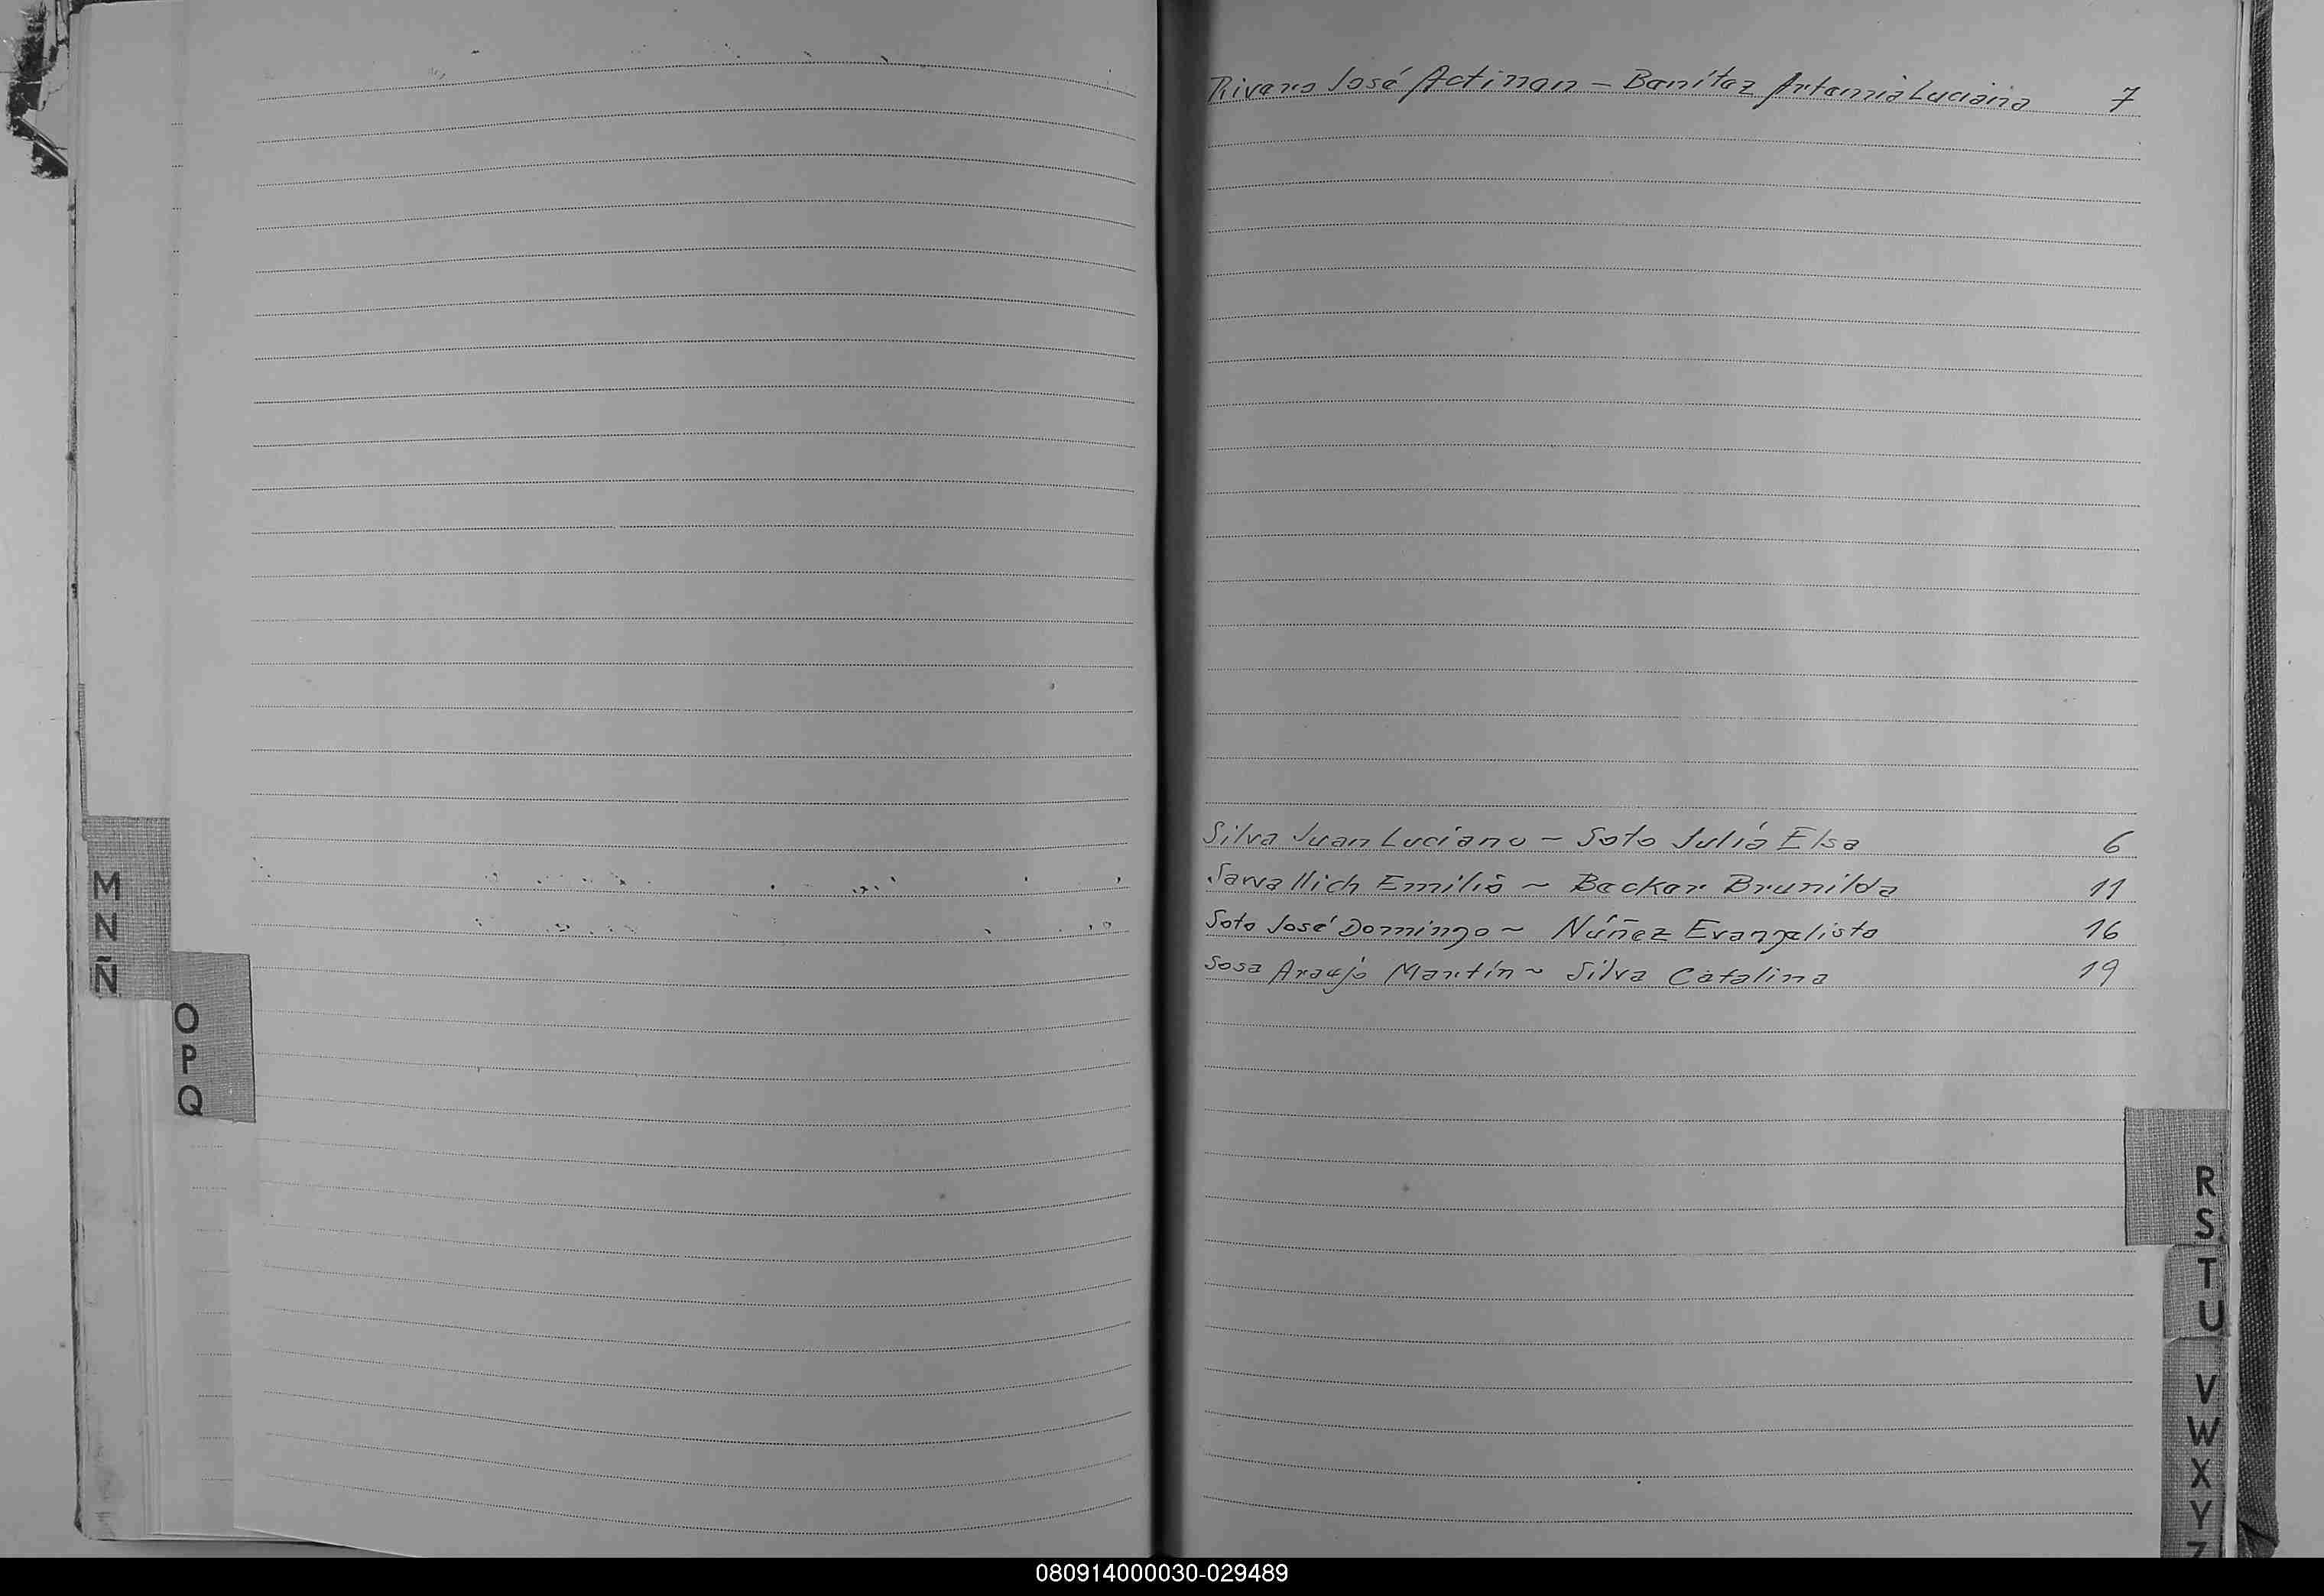 Rivero José Actinon - Benítez Artemia Luciana 7
Silva Juan Luciano - Soto Julia Elsa 6
Servallich Emilio ~ Becker Brunilda 11
Soto José Domingo ~ Núñez Evangelista 16
Sosa Araujo Martín ~ Silva Catalina 19
M
N
Ñ
O
P
Q
R
S
T
U
V
W
X
Y
Z
080914000030-029489